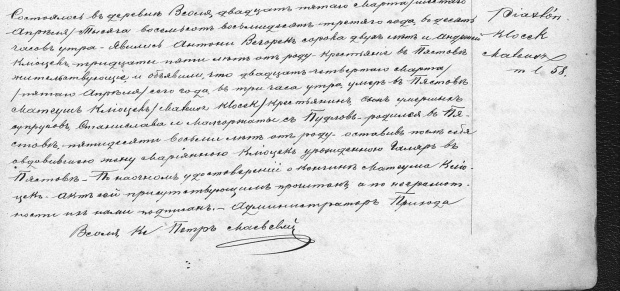 Состоялось въ деревнѣ Всоля, двадцать пятаго Марта /шестаго
Апрѣля/ тысяча восемьсотъ восемьдесятъ третьяго года, въ десять
часовъ утра. Явились Антони Вегорекъ сорока двухъ лѣтъ и Андржей
Клоцекъ тридцати пяти лѣтъ отъ роду крестьяне въ Пястовѣ
жительствующіе и объявили, что двадцать четвертаго Марта
/пятаго Апрѣля/ сего года, въ три часа утра, умеръ въ Пястовѣ
Матеушъ Клоцекъ /Mateusz Kłosek/ крестьянинъ, сынъ умершихъ
супруговъ Станислава и Малгоржаты съ родился въ Пя-
стовѣ, пятидесяти восьми лѣтъ отъ роду, оставивъ послѣ себя
овдовѣвшую жену Маріянну Клоцекъ урожденную въ
Пястовѣ. По наочномъ удостовѣреніи о кончинѣ Матеуша Кло-
цекъ. Актъ сей присутствующимъ прочитанъ а по неграмот-
ности ихъ нами подписанъ. Администраторъ Прихода
Всоля Кс Петръ
Piastów
Kłosek
Mateusz
l. 58.